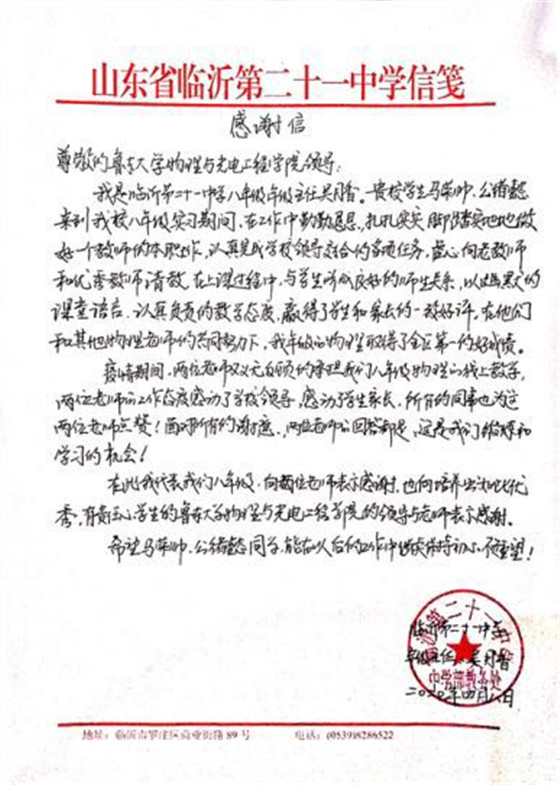 山东省临沂第二十一中学信笺
感谢信
尊敬的鲁东大学物理与光电工程学院领导:
我是临沂第二十一中学八年级年级主任吴月香。贵校学生马荣帅、公绪懿
来到我校八年级实习期间,在工作中勤勤恳恳,扎扎实实,脚踏实地地做
好一个教师的本职工作,认真完成学校领导交给的各项任务,虚心向老教师
和优秀教师请教,在上课过程中,与学生形成良好的师生关系,以幽默的
课堂语言、认真负责的教学态度,赢得了学生和家长的一致好评,在他们
和其他物理老师的共同努力下,我年级的物理取得了全区第一的好成绩。
疫情期间,两位老师又义无反顾的承担我们八年级物理的线上教学,
两位老师的工作态度感动了学校领导,感动了学生家长,所有的同事也为这
两位老师点赞!面对所有的谢意,两位老师的回答都是,这是我们锻炼和
学习的机会!
在此我代表我们八年级,向两位老师表示感谢,也向培养出如此优
秀,有责任心学生的鲁东大学物理与光电工程学院的领导与老师表示感谢。
希望马荣帅、公绪懿同学,能在以后的工作中继续保持初心,不负重望!
临沂第二十一中学
年级主任:吴月香
中学部教务处
二〇二〇年四月八日
地址:临沂市罗庄区商业街路 89 号 电话:(0539)8286522